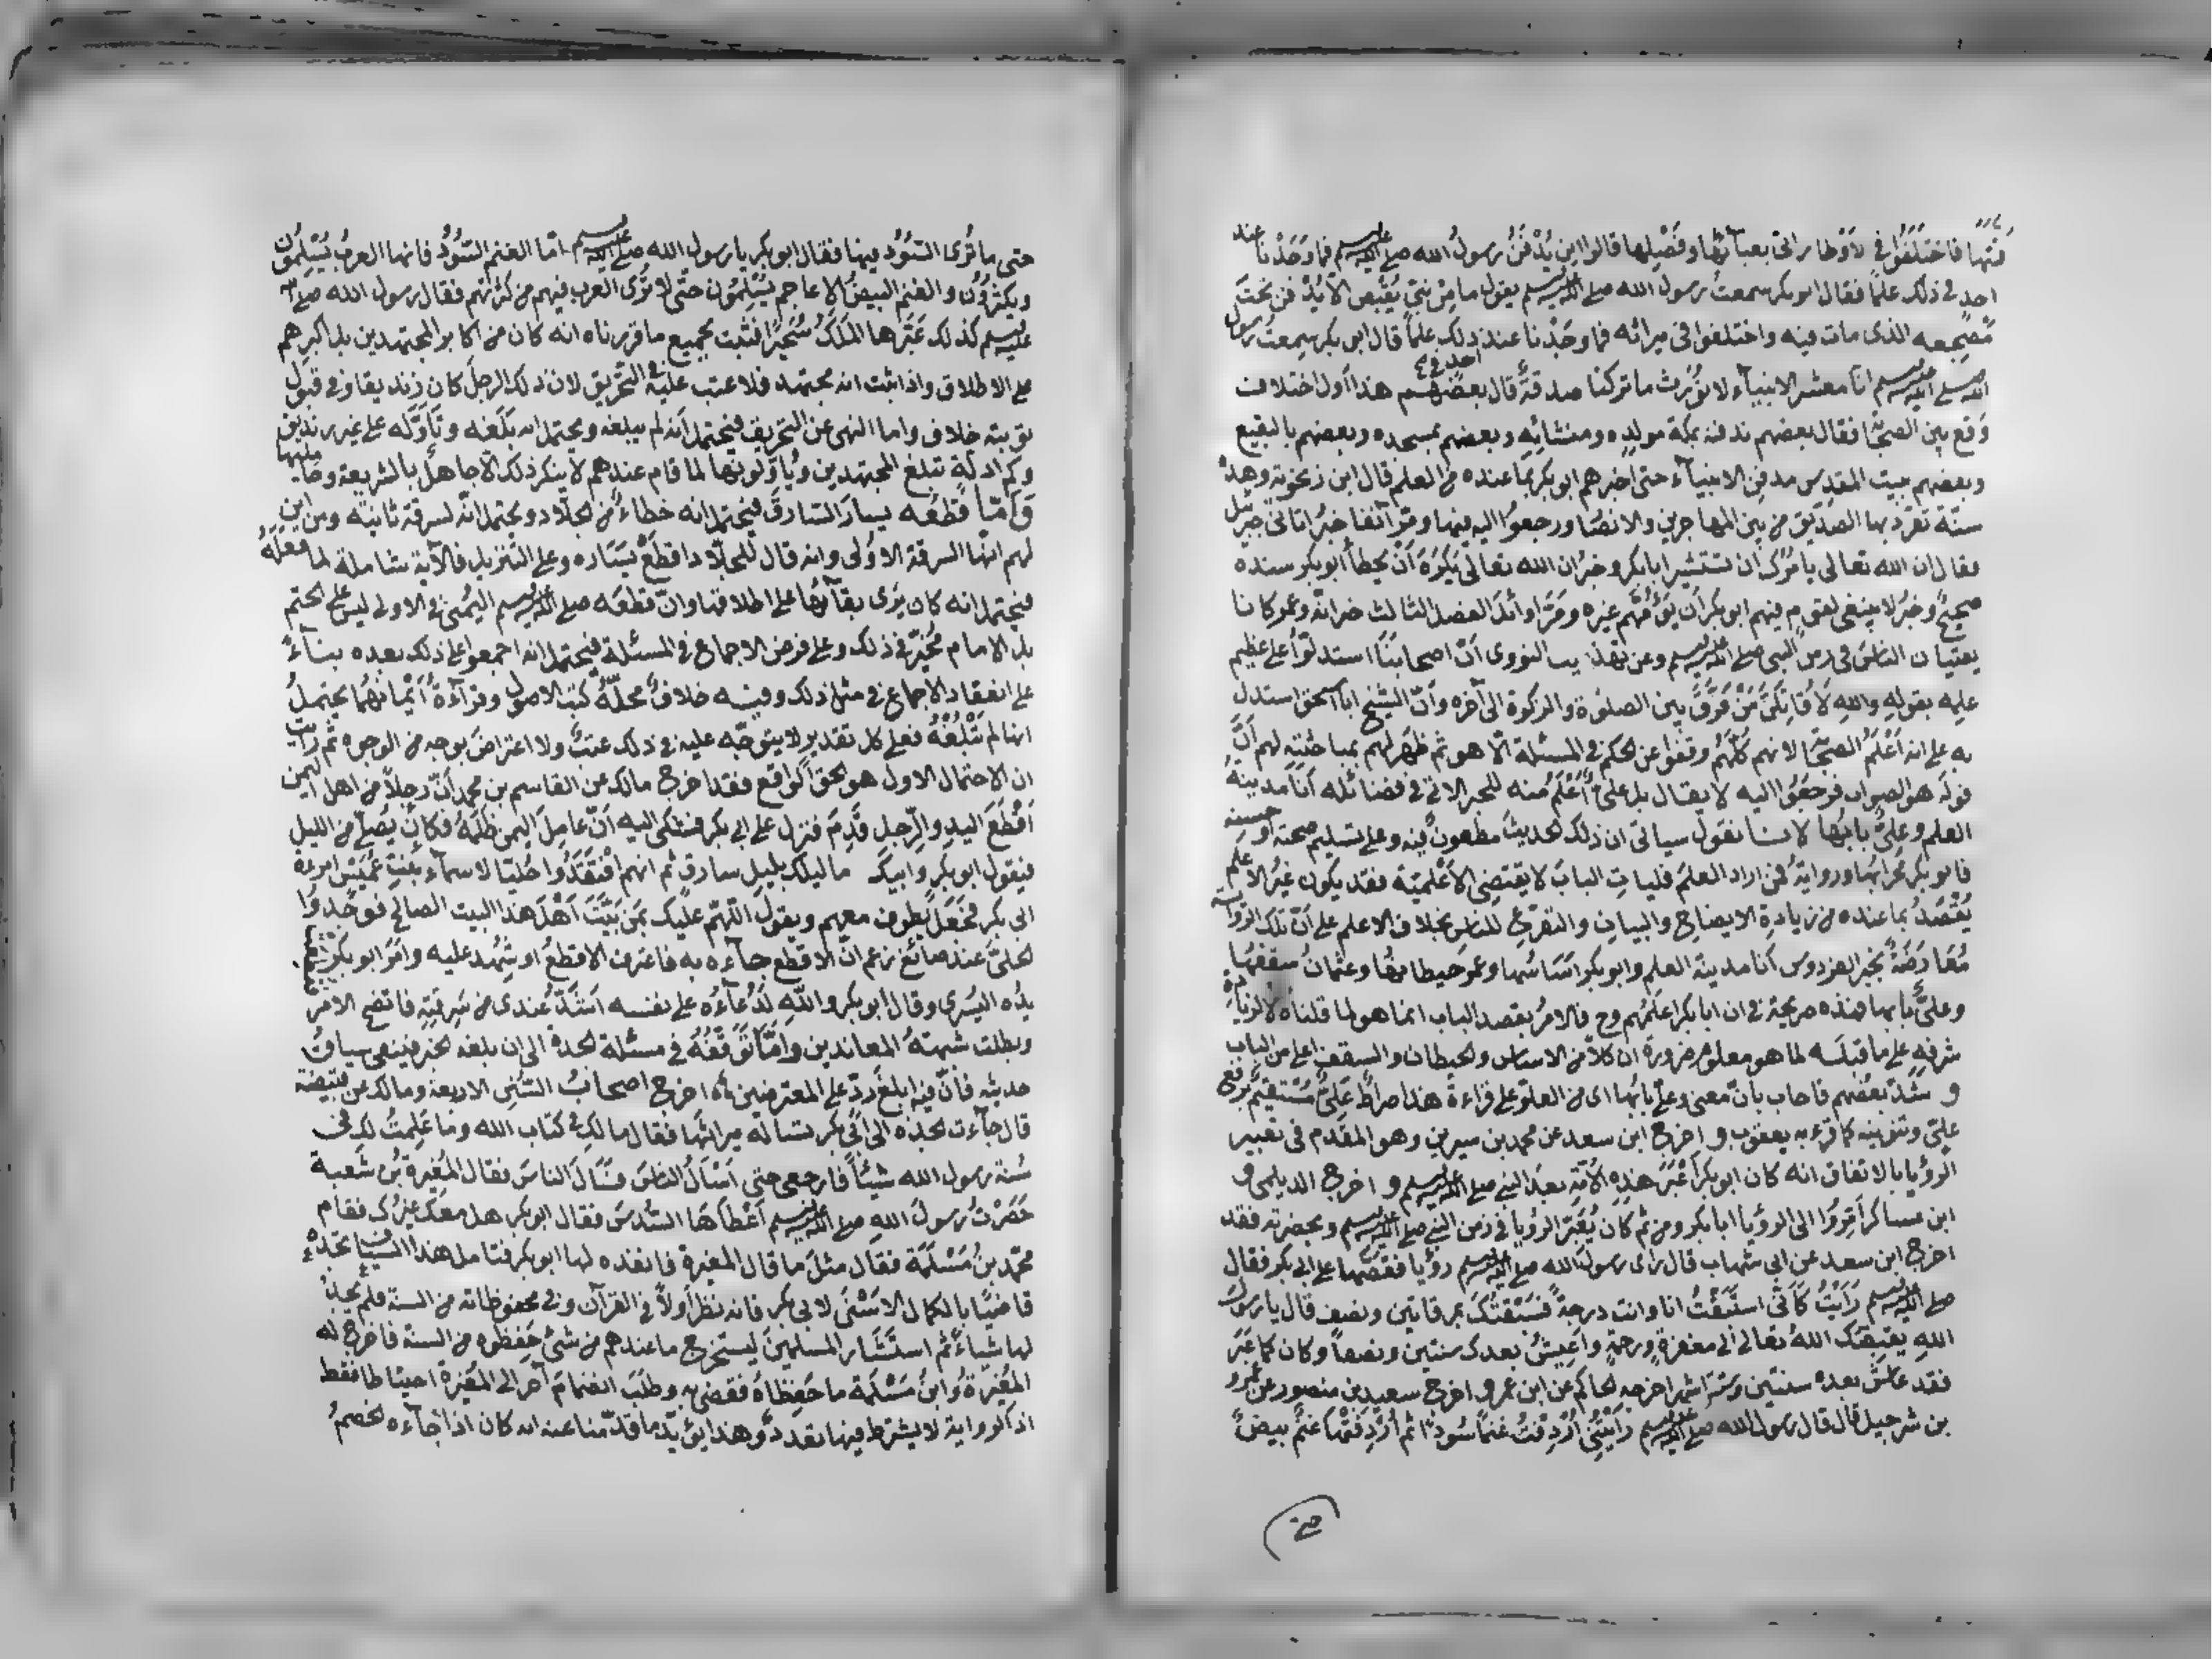 فَتنها فاختلفوا في لاوطار ابي بعبائها وفصلها قالوا اين يُدفَنُ رسولُ الله صلى الله عليه وسلم فما وَجَدْنا عند
احدٍ في ذلك علمًا فقال ابو بكر سمعتُ رسول الله صلى الله عليه وسلم يقول ما من نبيّ يُقبَض الا يُدْفن تحت
مَضجعه الذى مات فيه واختلفوا في ميراثه فما وجَدْنا عند احد في ذلك علماً قال ابو بكر سمعتُ رسول
الله صلى الله عليه وسلم انّا معشر الانبيآء لا نُوْرَث ما تركنا صدقةٌ قال بعضهم هذا اول اختلاف
وَقع بين الصحابة فقال بعضهم ندفنه بمكة مولدِه ومنشائِهِ وبعضهم بمسجده وبعضهم بالبقيع
وبعضهم ببيت المقدس مدفنِ الانبيآء حتى اخبرهم ابو بكر بما عنده من العلم قال ابن زنجويه وهذه
سنّة تفرّد بها الصدّيق من بين المهاجرين والانصار ورجعوا اليه فيها ومرّ آنفا خبرُ اتاني جبرئيل
فقال ان الله تعالى يامُرُك ان تستشير ابا بكر وخبرُ ان الله تعالى يَكرَهُ اَنْ يُخطأ ابو بكر سنده
صحيحٌ وخبرُ لا ينبغي لقوم فيهم ابو بكر اَن يَؤُمَّهم غيره ومَرّ اوائلَ الفصل الثالث خبر انه وعمر كانا
يفتيان الناسَ في زمن النبي صلى الله عليه وسلم وعن تهذيب النووى اَنّ اصحابَنَا استدلّوا على عظيم
علمه بقوله واللهِ لَاُقاتِلَنّ مَنْ فَرَّقَ بين الصلوٰة والزكوٰة الى آخره وَاَنّ الشيخ ابا اسحق استدل
به على انه اَعْلَمُ الصحابة لانهم كلَّهم وقفوا عن الحكم في المسئلة الّا هو ثم ظهر لهم بمباحثتِهِ لهم اَنّ
قولَه هو الصواب فرجعُوا اليه لا يقال بل علىٌّ اَعْلَمُ منه للخبر الاتي في فضائله اَنَا مدينةُ
العلم وعلىٌّ بابُها لانا نقول سياتى ان ذلك الحديث مطعونٌ فيه وعلى تسليم صحته او حسنه
فابو بكر محرابُها وروايةُ فمن اراد العلمَ فليات البابَ لا يقتضى الاَعْلميّة فقد يكون غيرُ الاعلم
يُقْصَدُ بما عنده من زيادةِ الايضاح والبيان والتفرغ للناس بخلاف الاعلم على اَنّ تلك الرواية
مُعَارَضةٌ بخبر الفردوس اَنا مدينة العلم وابو بكر اَساسُها وعمر حيطانُها وعثمانُ سقفُها
وعلىٌّ بابُها فهذه صريحة في ان ابا بكر اعلمُهم وح فالامرُ بقصد الباب انما هو لما قلناه لا لزيادة
شرفِه على ما قبلَه لما هو معلوم ضرورة ان كلّاً من الاساس والحيطان والسقف اعلى من الباب
و شذّ بعضُهم فاجاب بانّ معنى وعلىّ بابُها اى من العلوّ على قراءة هذا صراطٌ عَلِىٌّ مُسْتقيمٌ برفع
علىّ وتنوينه كما قرء به يعقوب و اخرج ابن سعد عن محمد بن سيرين وهو المقدّم في تعبير
الرؤيا بالاتفاق انه كان ابو بكر اَعْبَرَ هذه الاُمّة بعدَ النبي صلى الله عليه وسلم و اخرج الديلمى و
ابن عساكر اُمِرْتُ الى الرؤيا ابا بكر ومن ثم كان يُعَبّر الرؤيا في زمن النبي صلى الله عليه وسلم وبحضرته فقد
اخرج ابن سعد عن ابن شهاب قال راى رسول الله صلى الله عليه وسلم رؤيا فقصّها على ابي بكر فقال
صلى الله عليه وسلم رَاَيْتُ كَاَنّى استَبَقْتُ انا وانت درجةً فسَبَقتُكَ بمرقاتين ونصف قال يا رسول
الله يقبِضُك اللهُ تعالى الى مغفرةٍ ورحمةٍ واَعِيشُ بعدك سنتين ونصفاً وكان كما عَبَّرَ
فقد عاش بعده سنتين وستة اشهر اخرجه الحاكم عن ابن عمر و اخرج سعيد بن منصور عن عمرو
بن شرحبيل قال قال رسول الله صلى الله عليه وسلم رَاَيتُنى اُرْدِفْتُ غنمٌ سُودٌ ثم اُرْدِفَتْها غنمٌ بيضٌ
حتى ما تُرى السُّوْد فيها فقال ابو بكر يا رسول الله صلى الله عليه وسلم اَمّا الغنم السُّوْد فانها العربُ يُسْلِمُون
ويكثرُون والغنم البيضُ الاعاجم يُسْلِمُون حتّى لا تُرى العرب فيهم من كثرتهم فقال رسول الله صلى الله
عليه وسلم كذلك عَبَّرها المَلَكُ سَحَرًا فثبت بجميع ما قررناه انه كان من اكابر المجتهدين بل اكبرهم
على الاطلاق واذا ثبت انه مجتهد فلا عتب عليه في التحريق لان ذلك الرجلَ كان زنديقا وفي قبول
توبته خلاف واما النهى عن التحريق فيحتمل اَنه لم يبلغه ويحتمل انه بَلَغَه وتَاَوَّلَه على غير زنديق
وكم ادلّة تبلغ المجتهدين ويُاَوّلونها لما قام عندهم لا ينكر ذلك الّا جاهلٌ بالشريعة وحامليها
وَاَمّا قَطْعُه يسارَ السّارقِ فيحتمل انه خطاءٌ من الجلّاد ويحتمل انّه لسرقة ثانية ومن اين
لهم انّها السرقة الاوُلى وانه قال للجلّاد اقطَعْ يَسَاره وعلى التنزيل فالآية شاملة لما فعلَهُ
فيحتمل انه كان يَرَى بقآئَها على اطلاقها وانّ قطعَه صلى الله عليه وسلم اليُمنىٰ في الاولى ليس على الحتم
بل الامام مُخيّرٌ في ذلك وعلى فرض الاجماع في المسئلة فيحتمل انه اجمعوا على ذلك بعده بناءً
على انعقاد الاجماع في مثل ذلك وفيه خلافٌ محلّهُ كتب الاصول وقرآءةُ اَيْمانَهُمَا يحتملُ
انها لم تَبْلُغْهُ فعلى كل تقدير لا يتوجّه عليه في ذلك عتبٌ ولا اعتراضٌ بوجه من الوجوه ثم رايت
ان الاحتمال الاول هو الحق الواقع فقد اخرج مالك عن القاسم بن محمد اَنّ رجلاً من اهل اليمن
اَقطَعَ اليدِ والرِّجل قَدِمَ فنزل على ابي بكر فشكى اليه اَنّ عامل اليمن ظلَمَهُ فكان يُصَلّي من الليل
فيقول ابو بكر وَابيكَ ما ليلُك بليلِ سارق ثم انهم افْتَقَدُوا حُليّا لاسماء بنتِ عُمَيس امرءة
ابى بكر فجَعَلَ يَطوف معهم ويقول اللهم عليك بمَن بَيَّتَ اَهْلَ هذا البيت الصالح فوجَدوا
الحُلِيَّ عند صائغ زعم انّ الاقطع جآءه به فاعترف الاقطعُ او شُهِد عليه واَمَرَ ابو بكر فقطعت
يدُه اليُسرى وقال ابو بكر واللهِ لَدُعآءُه على نفسه اَشَدّ عندى من سَرِقَتِه فاتضح الامر
وبطلت شبهةُ المعاندين وَاَمّا تَوَقّفُهُ في مسئلة الجدة الى ان بلغه الخبر فينبغى سياقُ
حديثه فانّ فيه ابلغَ ردّ على المعترضين اخرج اصحابُ السُّنن الاربعة ومالك عن قبيصة
قال جآءت الجدّه الى ابي بكر تساَله ميراثَها فقال ما لكِ في كتاب الله وما عَلِمتُ لكِ في
سُنة رسول الله شيئاً فارجعى حتى اَسْاَلَ الناسَ فسَاَلَ الناسَ فقال المغيرة بن شعبة
حَضَرْتُ رسولَ اللهِ صلى الله عليه وسلم اَعْطاهَا السُّدسَ فقال ابو بكر هل معكَ غيرُك فقام
محمّد بنُ مَسْلَمَة فقال مثلَ ما قال المغيرة فانفذه لها ابو بكر فتامل هذا السياق تجدْهُ
قاضيًا بالكمال الاَسْنىٰ لابى بكر فانه نظر اولاً في القرآن وفي محفوظاته من السنة فلم يجدْ
لها شيئاً ثم استَشَار المسلمينَ ليستخرج ما عندهم من شئ حَفِظوه من السنة فاخرج له
المغيرةُ وابنُ مَسْلَمة ما حَفِظاهُ فقضى به وطَلَبَ انضمامَ آخر الى المُغيرة احتياطا فقط
اذ الرواية لا يشترط فيها تعدّدٌ وهذا يؤيّد ما قدّمنا عنه انه كان اذا جآءه الخصمُ